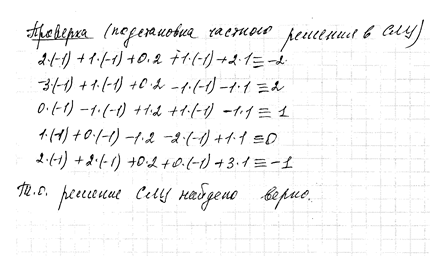 Проверка (подстановка частного решения в СЛУ)
2·(-1) + 1·(-1) + 0·2 + 1·(-1) + 2·1 ≡ -2
-3·(-1) + 1·(-1) + 0·2 - 1·(-1) - 1·1 ≡ 2
0·(-1) - 1·(-1) + 1·2 + 1·(-1) - 1·1 ≡ 1
1·(-1) + 0·(-1) - 1·2 - 2·(-1) + 1·1 ≡ 0
2·(-1) + 2·(-1) + 0·2 + 0·(-1) + 3·1 ≡ -1
Т.о. решение СЛУ найдено верно.